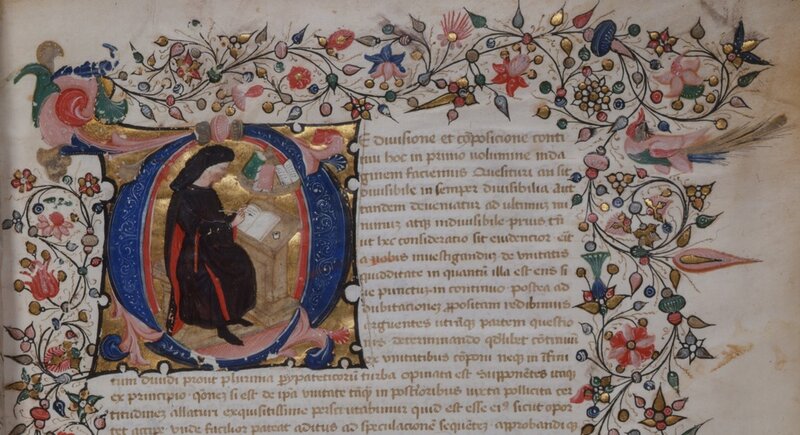 E diuisione et cōposicione conti
nui hoc in primo uolumine inda
ginem faciemus Quesituri an sit
diuisibile in semper diuisibilia Aut
tandem deueniatur ad ultimum mi
nimum atqꝫ indiuisibile prius tn̄
ut hec consideratio sit euidencior erit
a nobis inuestigandum de unitatis
quidditate in quantum illa est ens si
ue punctus in continuo postea ad
dubitacionem ꝓpositam redibimus
arguentes utrāqꝫ partem questio
nis determinando quodlibet continuū
ex unitatibus cōponi neqꝫ in
tum diuidi prout plurima perypateticorū turba opinata est Supponētes itaqꝫ
ex principio si est de ipā unitate tāqꝫ in posterioribus iuxta pollicita cer
titudinem allaturi exquisitissime perscrutabimur quid est esse sicut opor
tet accipe unde facilior pateat aditus ad speculationē sequētem approbandi